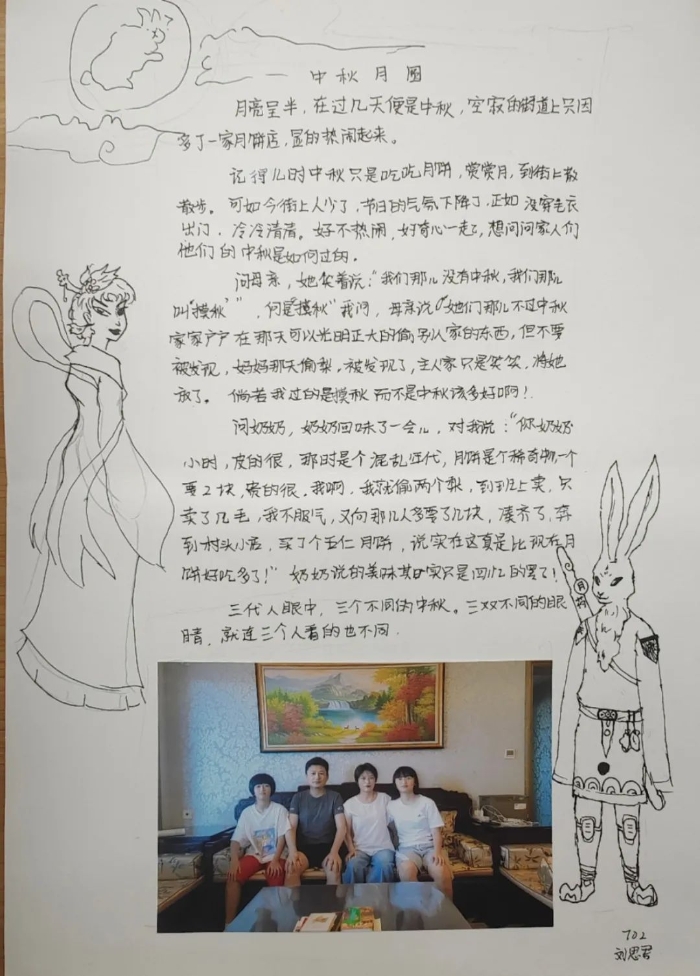 中秋月圆
月亮呈半，在过几天便是中秋，空寂的街道上只因
多了一家月饼店，显的热闹起来。
记得儿时中秋只是吃吃月饼，赏赏月，到街上散
散步。可如今街上人少了，节日的气氛下降了，正如没穿毛衣
出门，冷冷清清。好不热闹，好奇心一起了，想问问家人们
他们的中秋是如何过的。
问母亲，她笑着说："我们那儿没有中秋，我们那儿
叫"摸秋""，何是"摸秋"我问，母亲说"她们那儿不过中秋
家家户户在那天可以光明正大的偷别人家的东西，但不要
被发现，妈妈那天偷梨，被发现了，主人家只是笑笑，将她
放了。倘若我过的是摸秋而不是中秋该多好啊！
问奶奶，奶奶回味了一会儿，对我说："你奶奶
小时，皮的很，那时是个混乱年代，月饼是个稀奇物，一个
要2块，贵的很。我啊，我就偷两个梨，到班上卖，只
卖了几毛，我不服气，又向那几人多要了几块，凑齐了，奔
到村头小店，买了个五仁月饼，说实在这真是比现在月
饼好吃多了！"奶奶说的美味其实只是回忆的罢了！
三代人眼中，三个不同的中秋。三双不同的眼
睛，就连三个人看的也不同.
月
702
刘思君